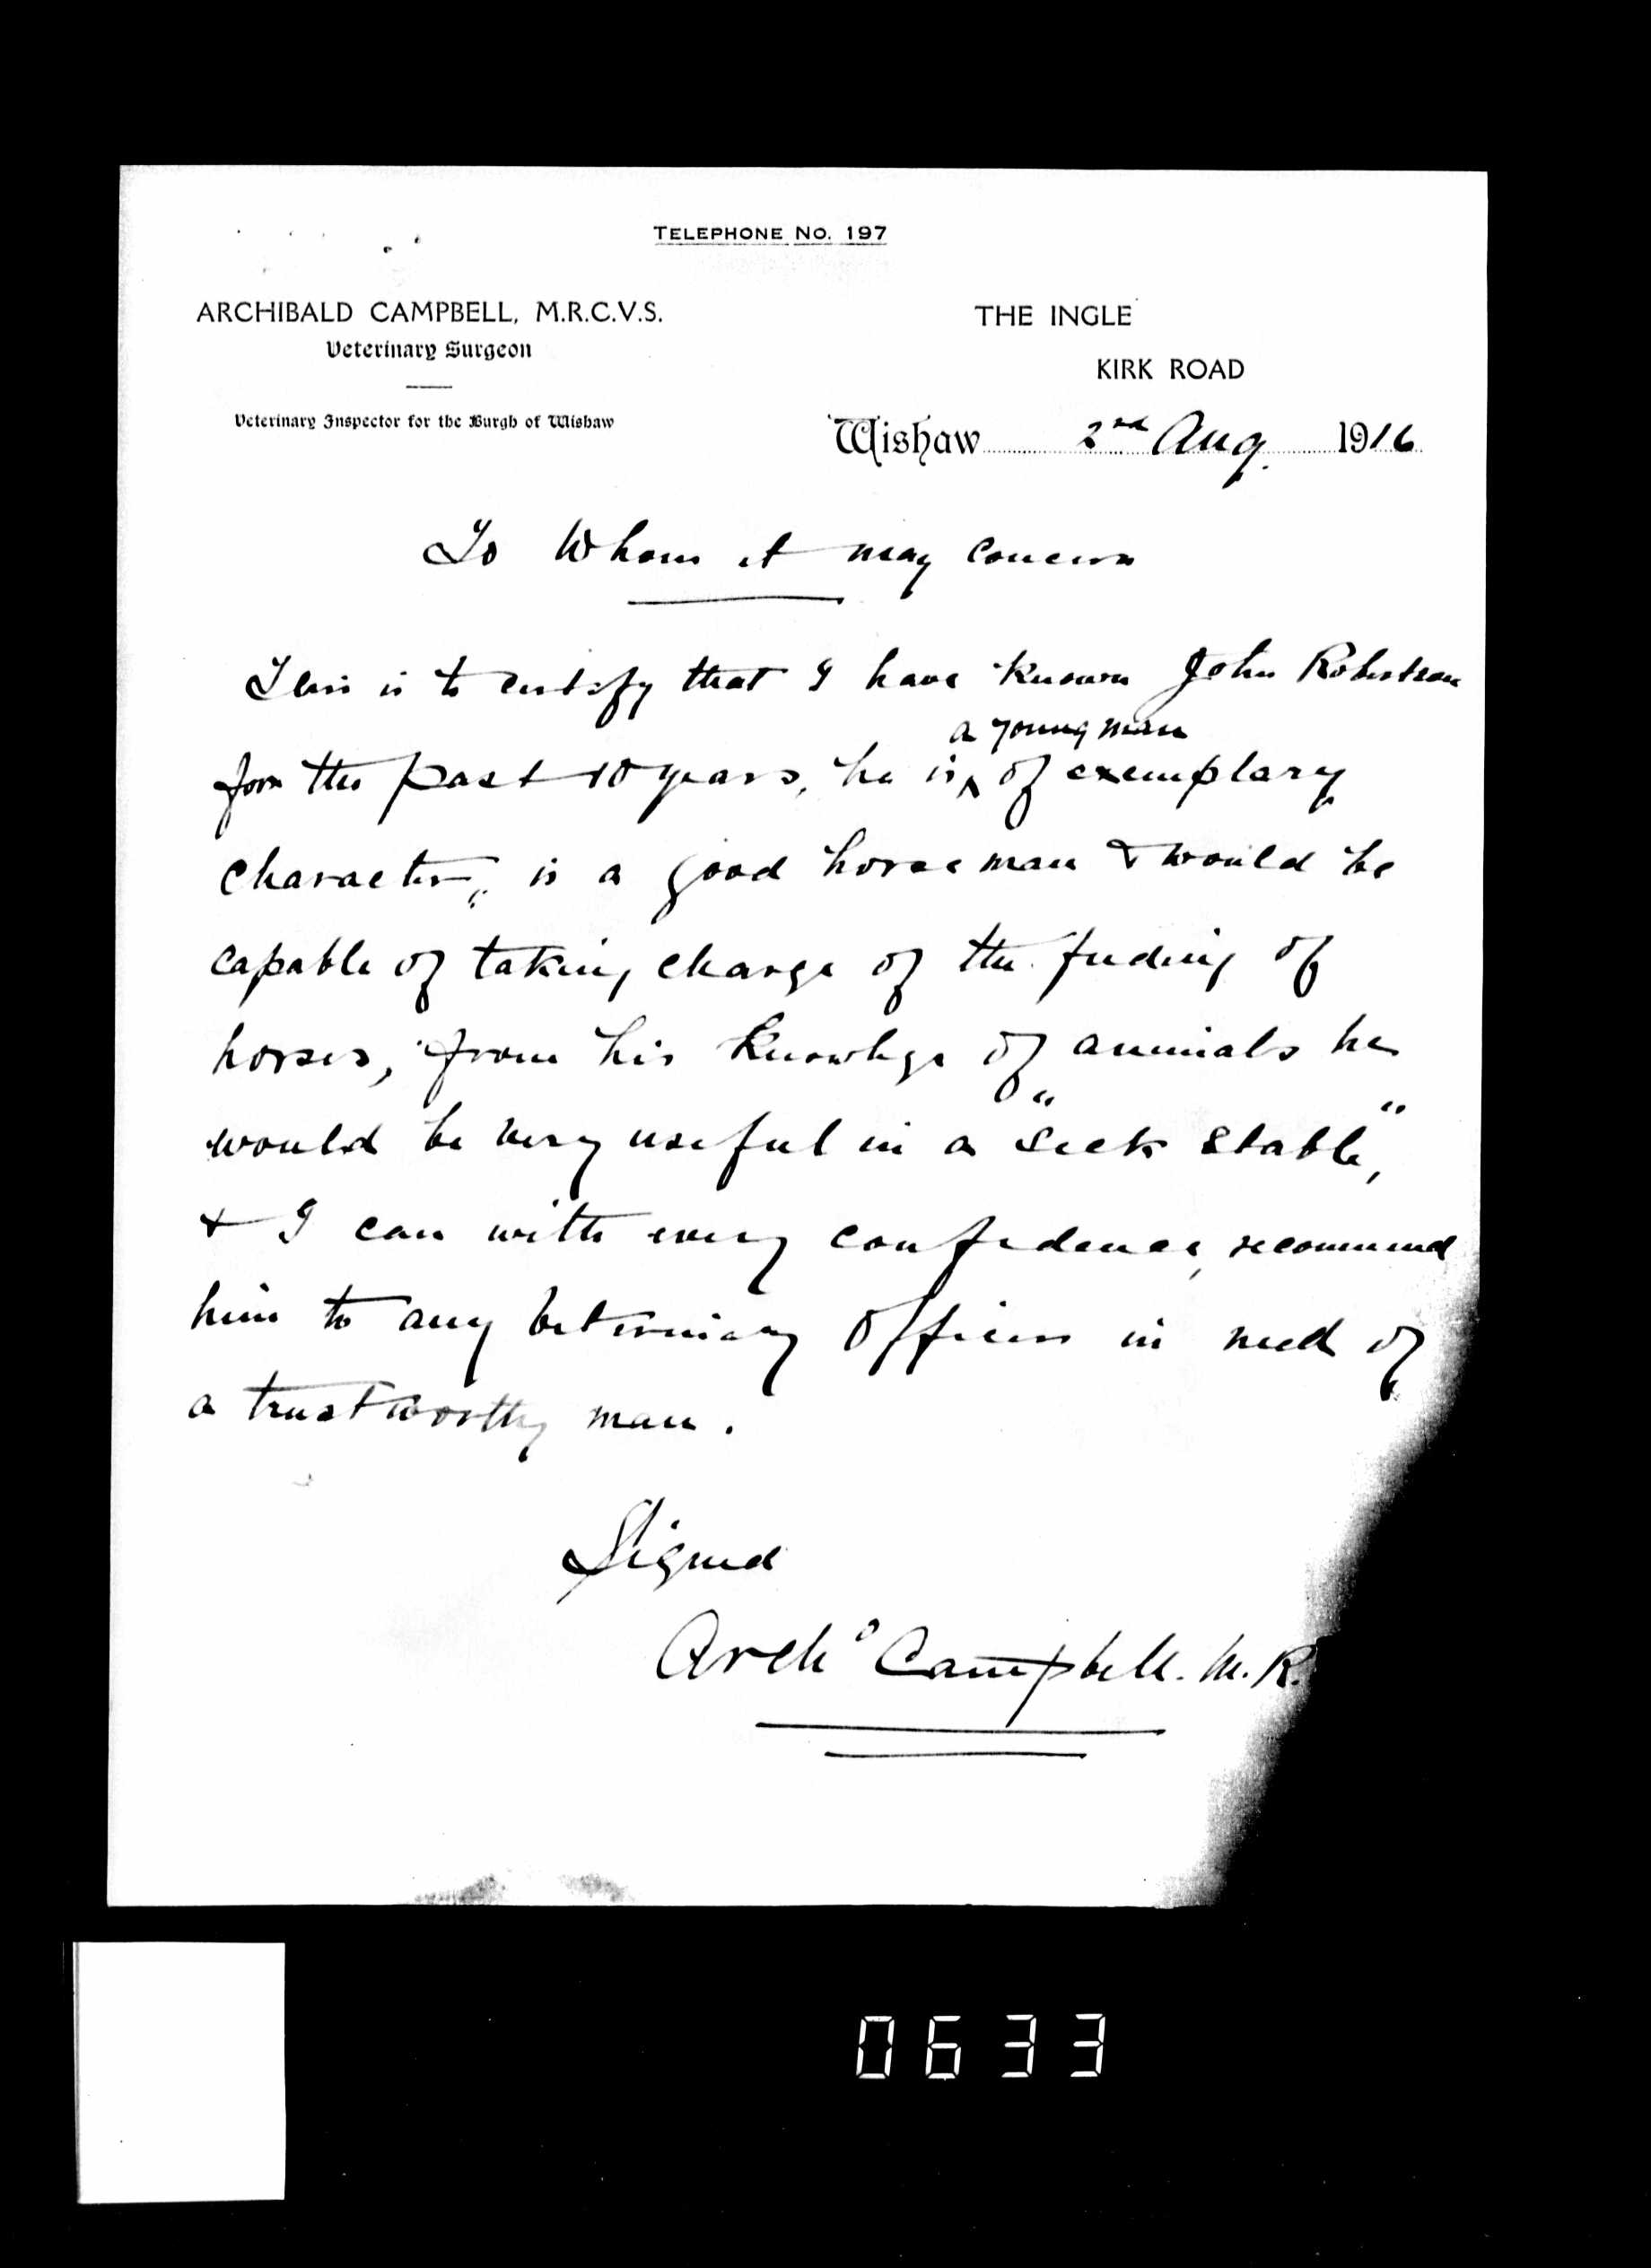 TELEPHONE NO. 197
ARCHIBALD CAMPBELL, M.R.C.V.S.
Veterinary Surgeon
Veterinary Inspector for the Burgh of Wishaw
THE INGLE
KIRK ROAD
Wishaw 2nd Aug. 1916
To Whom it may concern
This is to certify that I have known John Robertson
a young man
for the past 10 years, he is ^ of exemplary
character, is a good horseman & would be
capable of taking charge of the feeding of
horses, from his knowledge of animals he
would be very useful in a "sick stable",
& I can with every confidence, recommend
him to any veterinary officer in need of
a trustworthy man.
Signed
Archd Campbell. M.R.
0633